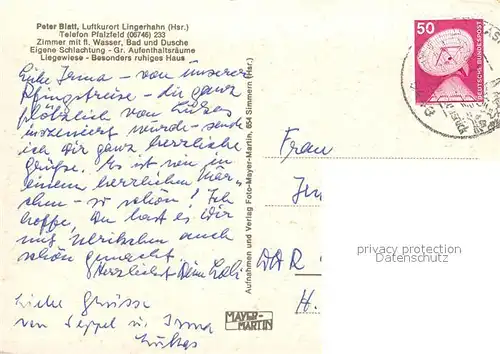 Peter Blatt, Luftkurort Lingerhahn (Hsr.)
Telefon Pfalzfeld (06746) 233
Zimmer mit fl. Wasser, Bad und Dusche
Eigene Schlachtung - Gr. Aufenthaltsräume
Liegewiese - Besonders ruhiges Haus
Liebe Irma - von unserer
Pfingstreise - die ganz
plötzlich von Lukas
inszeniert wurde - sende
ich Dir ganz herzliche
Grüße. Es ist hier in
einem herrlichen
so schön! Ich
hoffe, Du hast es Dir
mit auch
schön gemacht.
Herzlichst Deine
Liebe Grüsse
von Seppel u. Irma
Lukas
Aufnahmen und Verlag Foto-Mayer-Martin, 654 Simmern (Hsr.)
MAYER-
MARTIN
50
DEUTSCHE BUNDESPOST
Frau
DAR
H.
privacy protection
DARABANETH